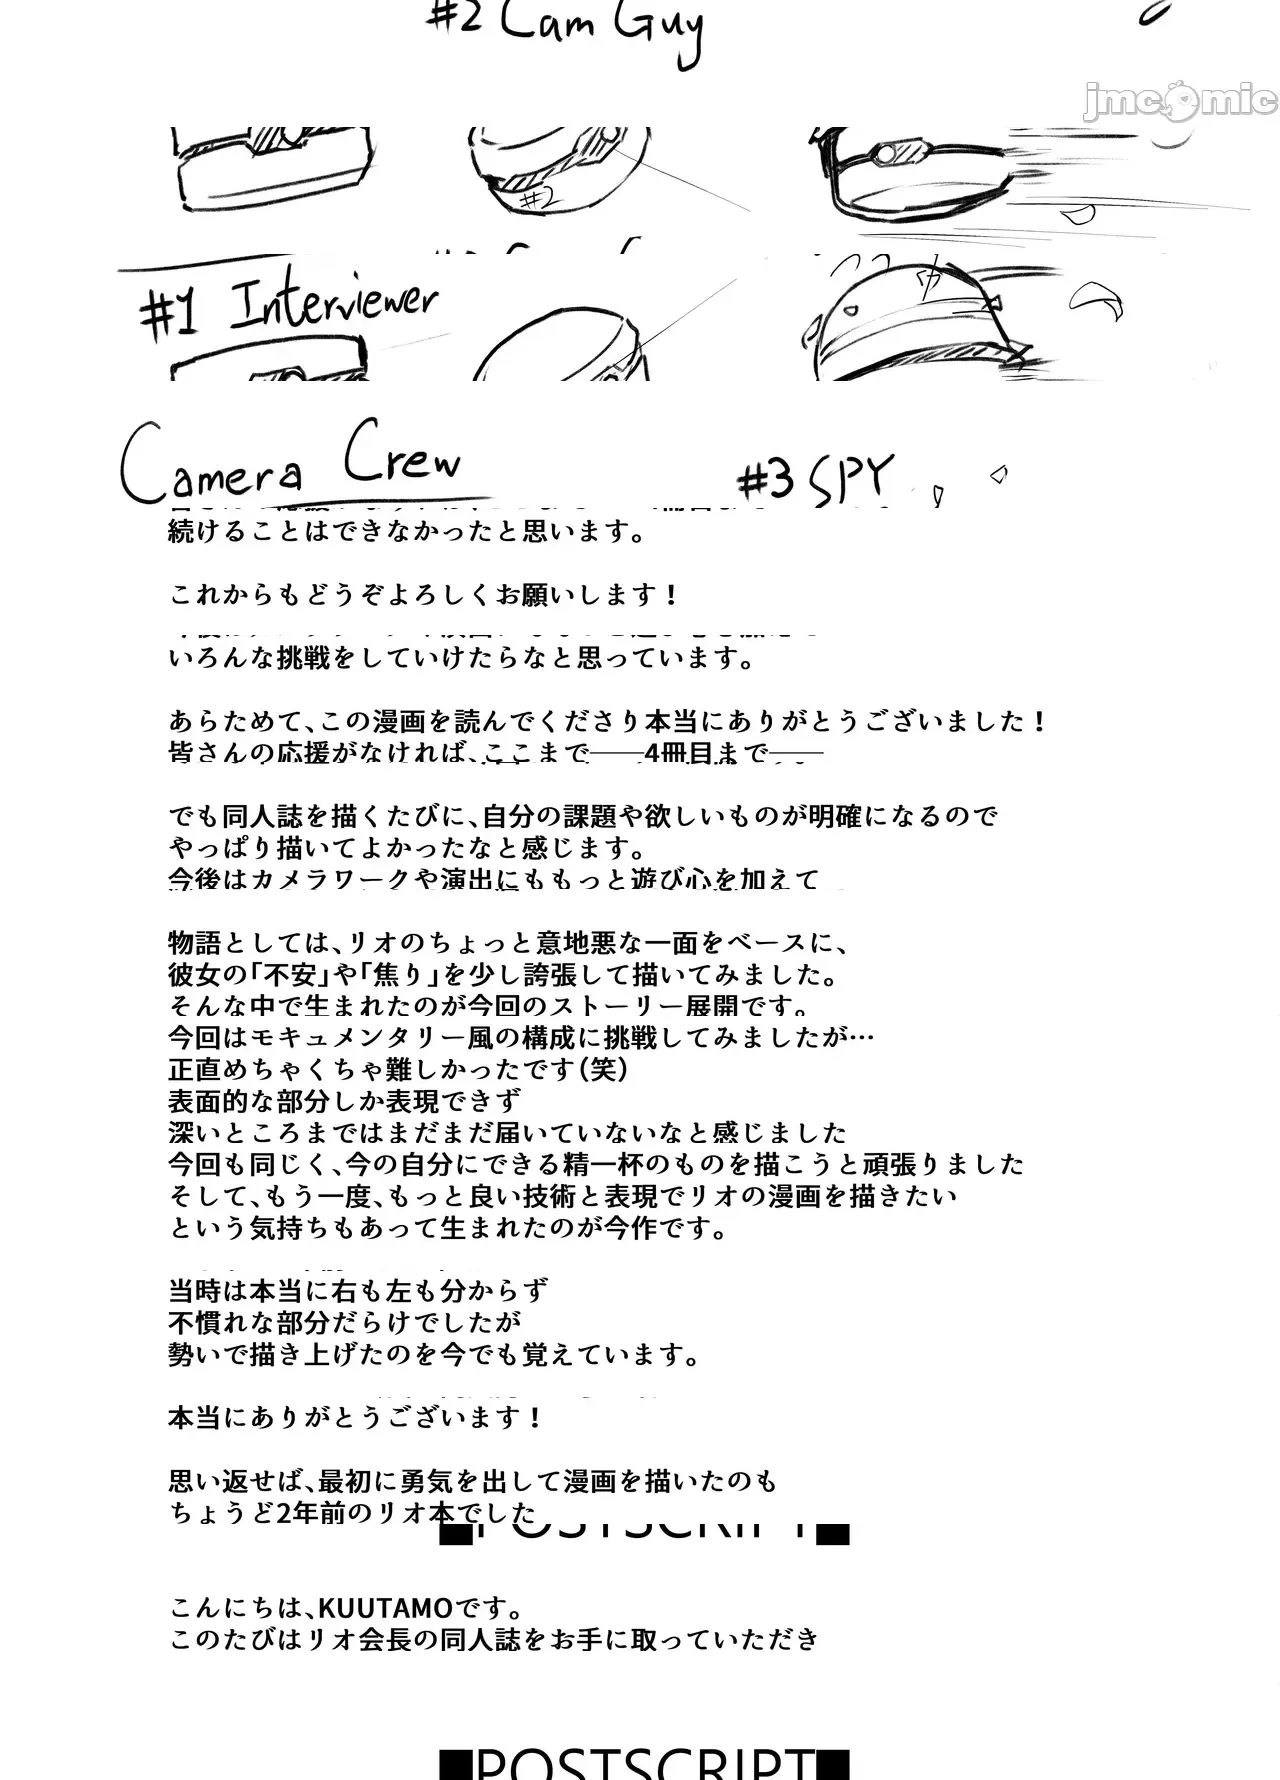 #2 Cam Guy
jmcomic
#2
#1 Interviewer
Camera Crew
#3 SPY
続けることはできなかったと思います。
これからもどうぞよろしくお願いします！
いろんな挑戦をしていけたらなと思っています。
あらためて、この漫画を読んでくださり本当にありがとうございました！
皆さんの応援がなければ、ここまで──4冊目まで──
でも同人誌を描くたびに、自分の課題や欲しいものが明確になるので
やっぱり描いてよかったなと感じます。
今後はカメラワークや演出にももっと遊び心を加えて
物語としては、リオのちょっと意地悪な一面をベースに、
彼女の「不安」や「焦り」を少し誇張して描いてみました。
そんな中で生まれたのが今回のストーリー展開です。
今回はモキュメンタリー風の構成に挑戦してみましたが…
正直めちゃくちゃ難しかったです（笑）
表面的な部分しか表現できず
深いところまではまだまだ届いていないなと感じました
今回も同じく、今の自分にできる精一杯のものを描こうと頑張りました
そして、もう一度、もっと良い技術と表現でリオの漫画を描きたい
という気持ちもあって生まれたのが今作です。
当時は本当に右も左も分からず
不慣れな部分だらけでしたが
勢いで描き上げたのを今でも覚えています。
本当にありがとうございます！
思い返せば、最初に勇気を出して漫画を描いたのも
ちょうど2年前のリオ本でした
■POSTSCRIPT■
こんにちは、KUUTAMOです。
このたびはリオ会長の同人誌をお手に取っていただき
■POSTSCRIPT■